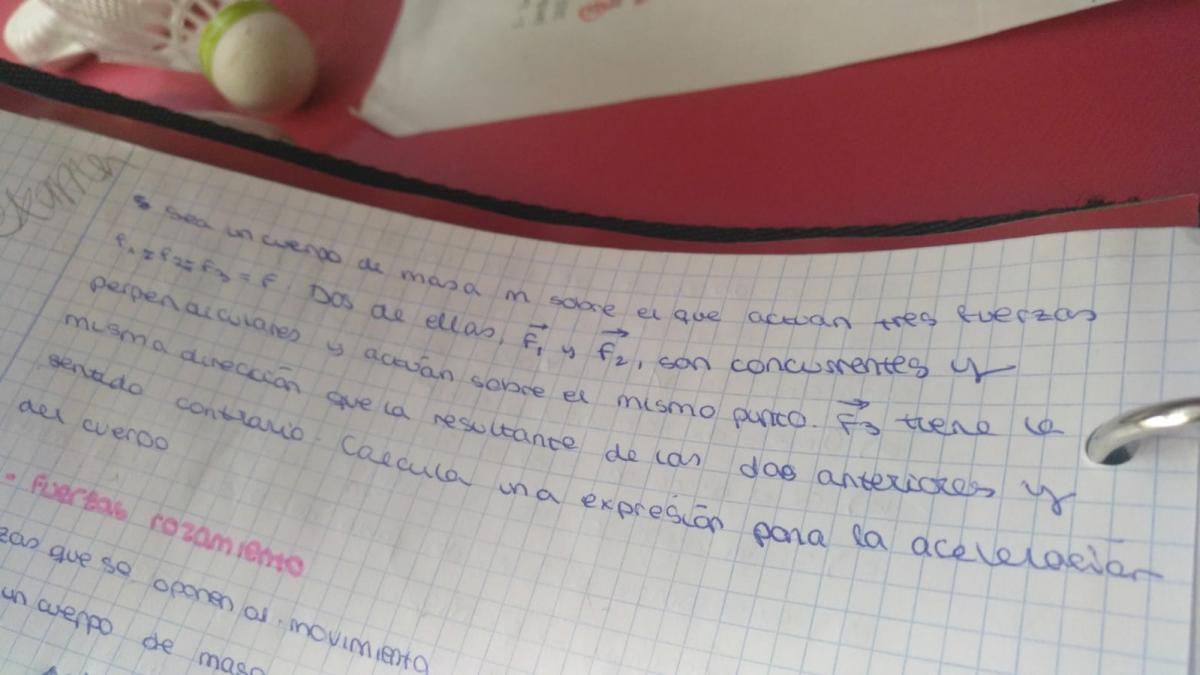 Sea un cuerpo de masa m sobre el que actúan tres fuerzas
F1=F2=F3=F. Dos de ellas, F1 y F2, son concurrentes y
perpendiculares y actúan sobre el mismo punto. F3 tiene la
misma dirección que la resultante de las dos anteriores y
sentido contrario. Calcula una expresión para la aceleración
del cuerpo
. Fuerzas rozamiento
zas que se oponen al movimiento
un cuerpo de masa